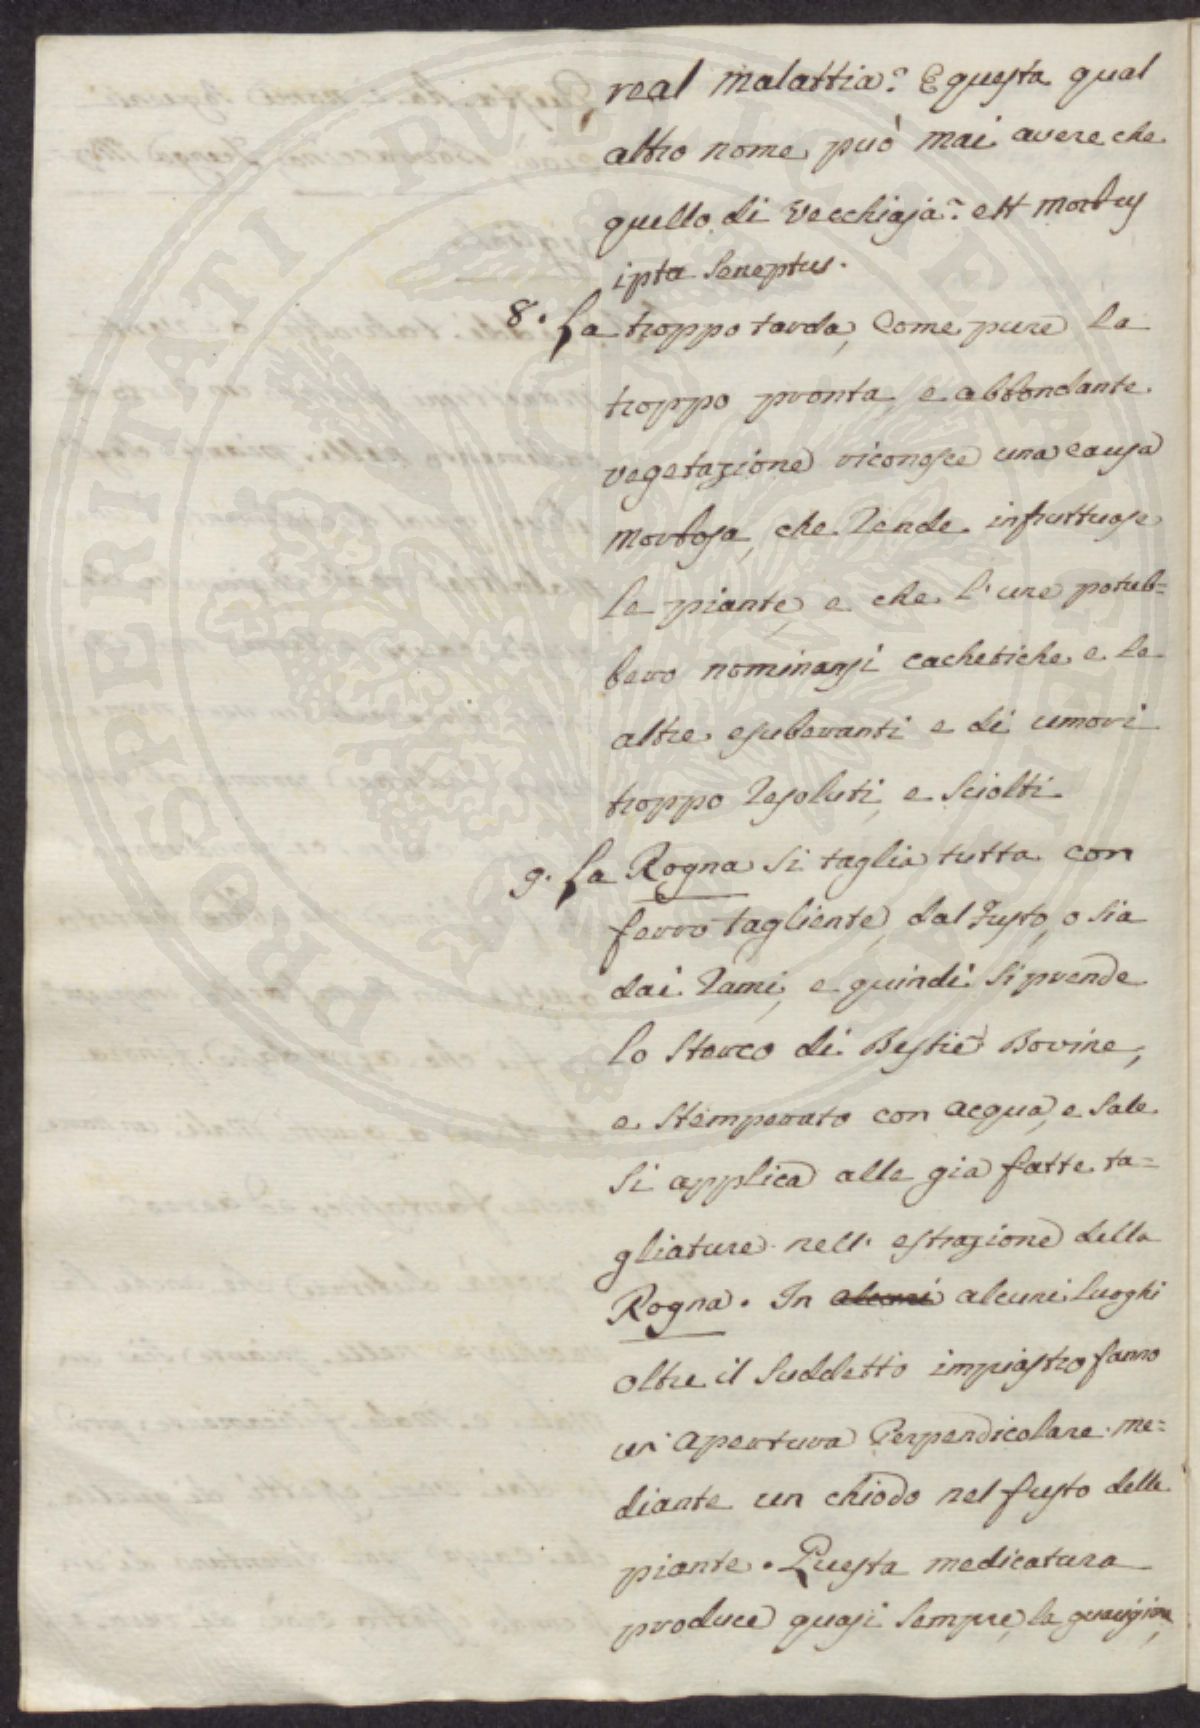 real malattia? E questa qual
altro nome può mai avere che
quello di Vecchiaja? est morbus
ipsa Senectus.
8. La troppo tarda, Come pure la
troppo pronta, e abbondante
vegetazione riconosce una causa
morbosa, che rende infruttuose
le piante, e che l'une potreb=
bero nominarsi cachetiche e le
altre esuberanti e di umori
troppo resoluti, e Sciolti
9. La Rogna si taglia tutta con
ferro tagliente, dal fusto, o sia
dai rami, e quindi si prende
lo Sterco di Bestie Bovine,
e Stemperato con acqua, e Sale
Si applica alle gia fatte ta=
gliature nell' estrazione della
Rogna. In alcuni alcuni luoghi
oltre il Suddetto impiastro fanno
un' apertura Perpendicolare me=
diante un chiodo nel fusto delle
piante. Questa medicatura
produce quasi Sempre, la guarigione,
PROSPERITATI PUBLICAE